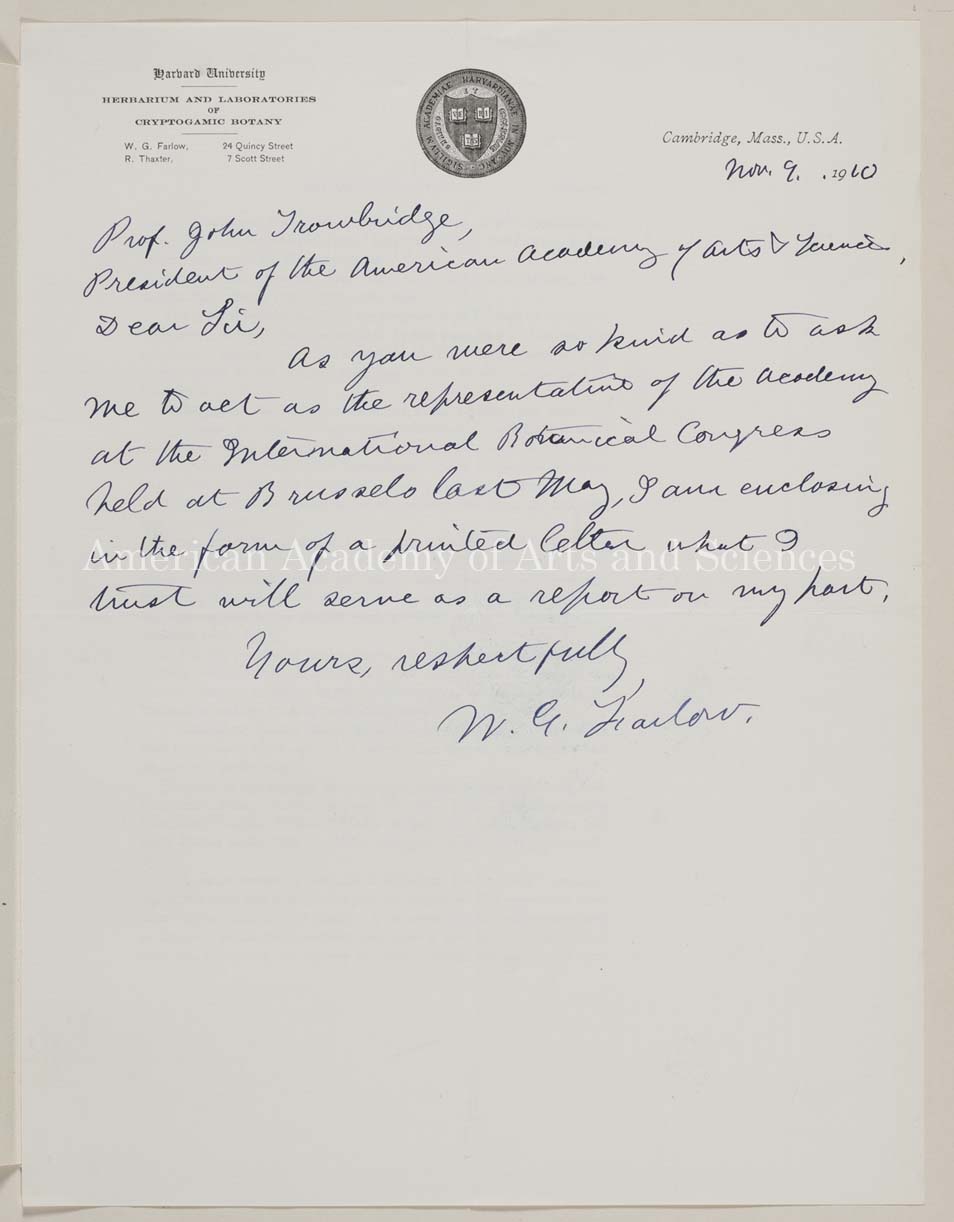 Harvard University
HERBARIUM AND LABORATORIES
OF
CRYPTOGAMIC BOTANY
W. G. Farlow, 24 Quincy Street
R. Thaxter, 7 Scott Street
SIGILLVM ACADEMIAE HARVARDIANAE IN NOV. ANG.
Cambridge, Mass., U.S.A.
Nov. 9. . 1910
Prof. John Trowbridge,
President of the American Academy of Arts & Sciences,
Dear Sir,
As you were so kind as to ask
me to act as the representative of the Academy
at the International Botanical Congress
held at Brussels last May, I am enclosing
in the form of a printed letter what I
American Academy of Arts and Sciences
trust will serve as a report on my part.
Yours, respectfully,
W. G. Farlow.